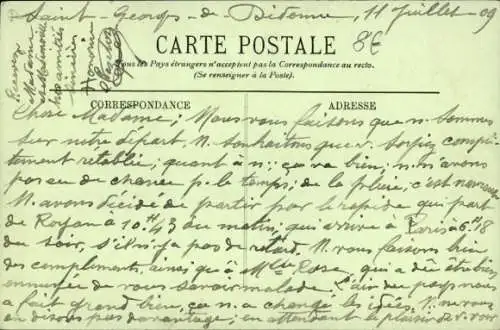 Saint-Georges-de-Didonne, 11 Juillet-09
8E
CARTE POSTALE
Tous les Pays étrangers n'acceptent pas la Correspondance au recto.
(Se renseigner à la Poste).
CORRESPONDANCE
ADRESSE
Recevez
Madame
mes amitiés
Chère Madame; Nous vous faisons que n. sommes
sur notre départ. N. souhaitons que v. soyiez complè-
tement rétablie; quant à n:; ça va bien; n. n'avons
pas eu de chance p. le temps; de la pluie, c'est
N. avons décidé de partir par le rapide qui part
de Royan à 10H43 du matin, qui arrive à Paris à 6H18
du soir, s'il n'y a pas de retard. N. vous faisons bien
des compliments, ainsi que à Mlle Rose, qui a dû être bien
ennuyée de vous savoir malade. L'air du pays nous
a fait grand bien, ça n. a changé les idées. N. ne vous
en disons pas davantage; en attendant le plaisir de v. voir